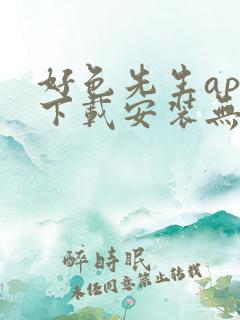 好色先生ap
下載安裝無
醉時眠
未经同意禁止转载